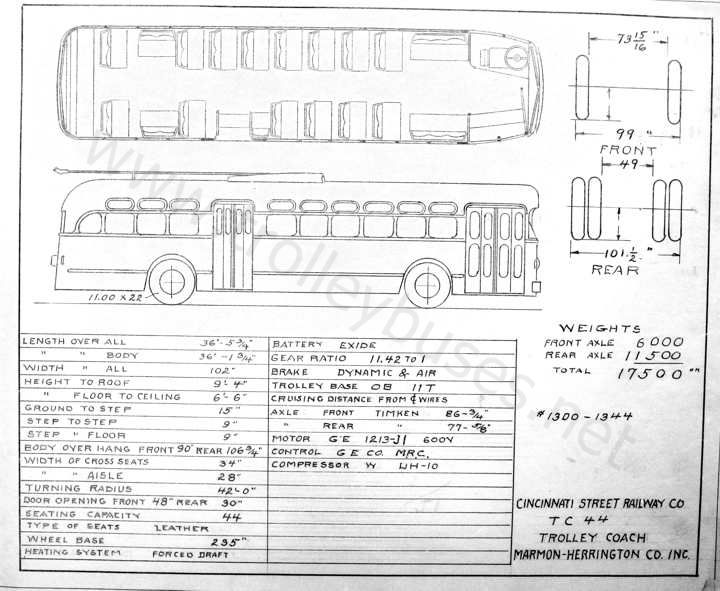 73 15/16
99"
FRONT
49
101 1/2"
REAR
11.00 X 22
www.trolleybuses.net
WEIGHTS
FRONT AXLE 6000
REAR AXLE 11500
TOTAL 17500
#1300-1344
LENGTH OVER ALL 36'-5 3/4"
" " BODY 36'-1 3/4"
WIDTH " ALL 102"
HEIGHT TO ROOF 9'-4"
" FLOOR TO CEILING 6'-6"
GROUND TO STEP 15"
STEP TO STEP 9"
STEP " FLOOR 9"
BODY OVER HANG FRONT 90" REAR 106 3/4"
WIDTH OF CROSS SEATS 34"
" " AISLE 28"
TURNING RADIUS 42'-0"
DOOR OPENING FRONT 48" REAR 30"
SEATING CAPACITY 44
TYPE OF SEATS LEATHER
WHEEL BASE 235"
HEATING SYSTEM FORCED DRAFT
BATTERY EXIDE
GEAR RATIO 11.42 TO 1
BRAKE DYNAMIC & AIR
TROLLEY BASE OB 11T
CRUISING DISTANCE FROM ℄ WIRES
AXLE FRONT TIMKEN 86-3/4"
" REAR " 77-5/8"
MOTOR GE 1213-J1 600V
CONTROL G E CO. MRC.
COMPRESSOR W UH-10
CINCINNATI STREET RAILWAY CO
TC 44
TROLLEY COACH
MARMON-HERRINGTON CO. INC.